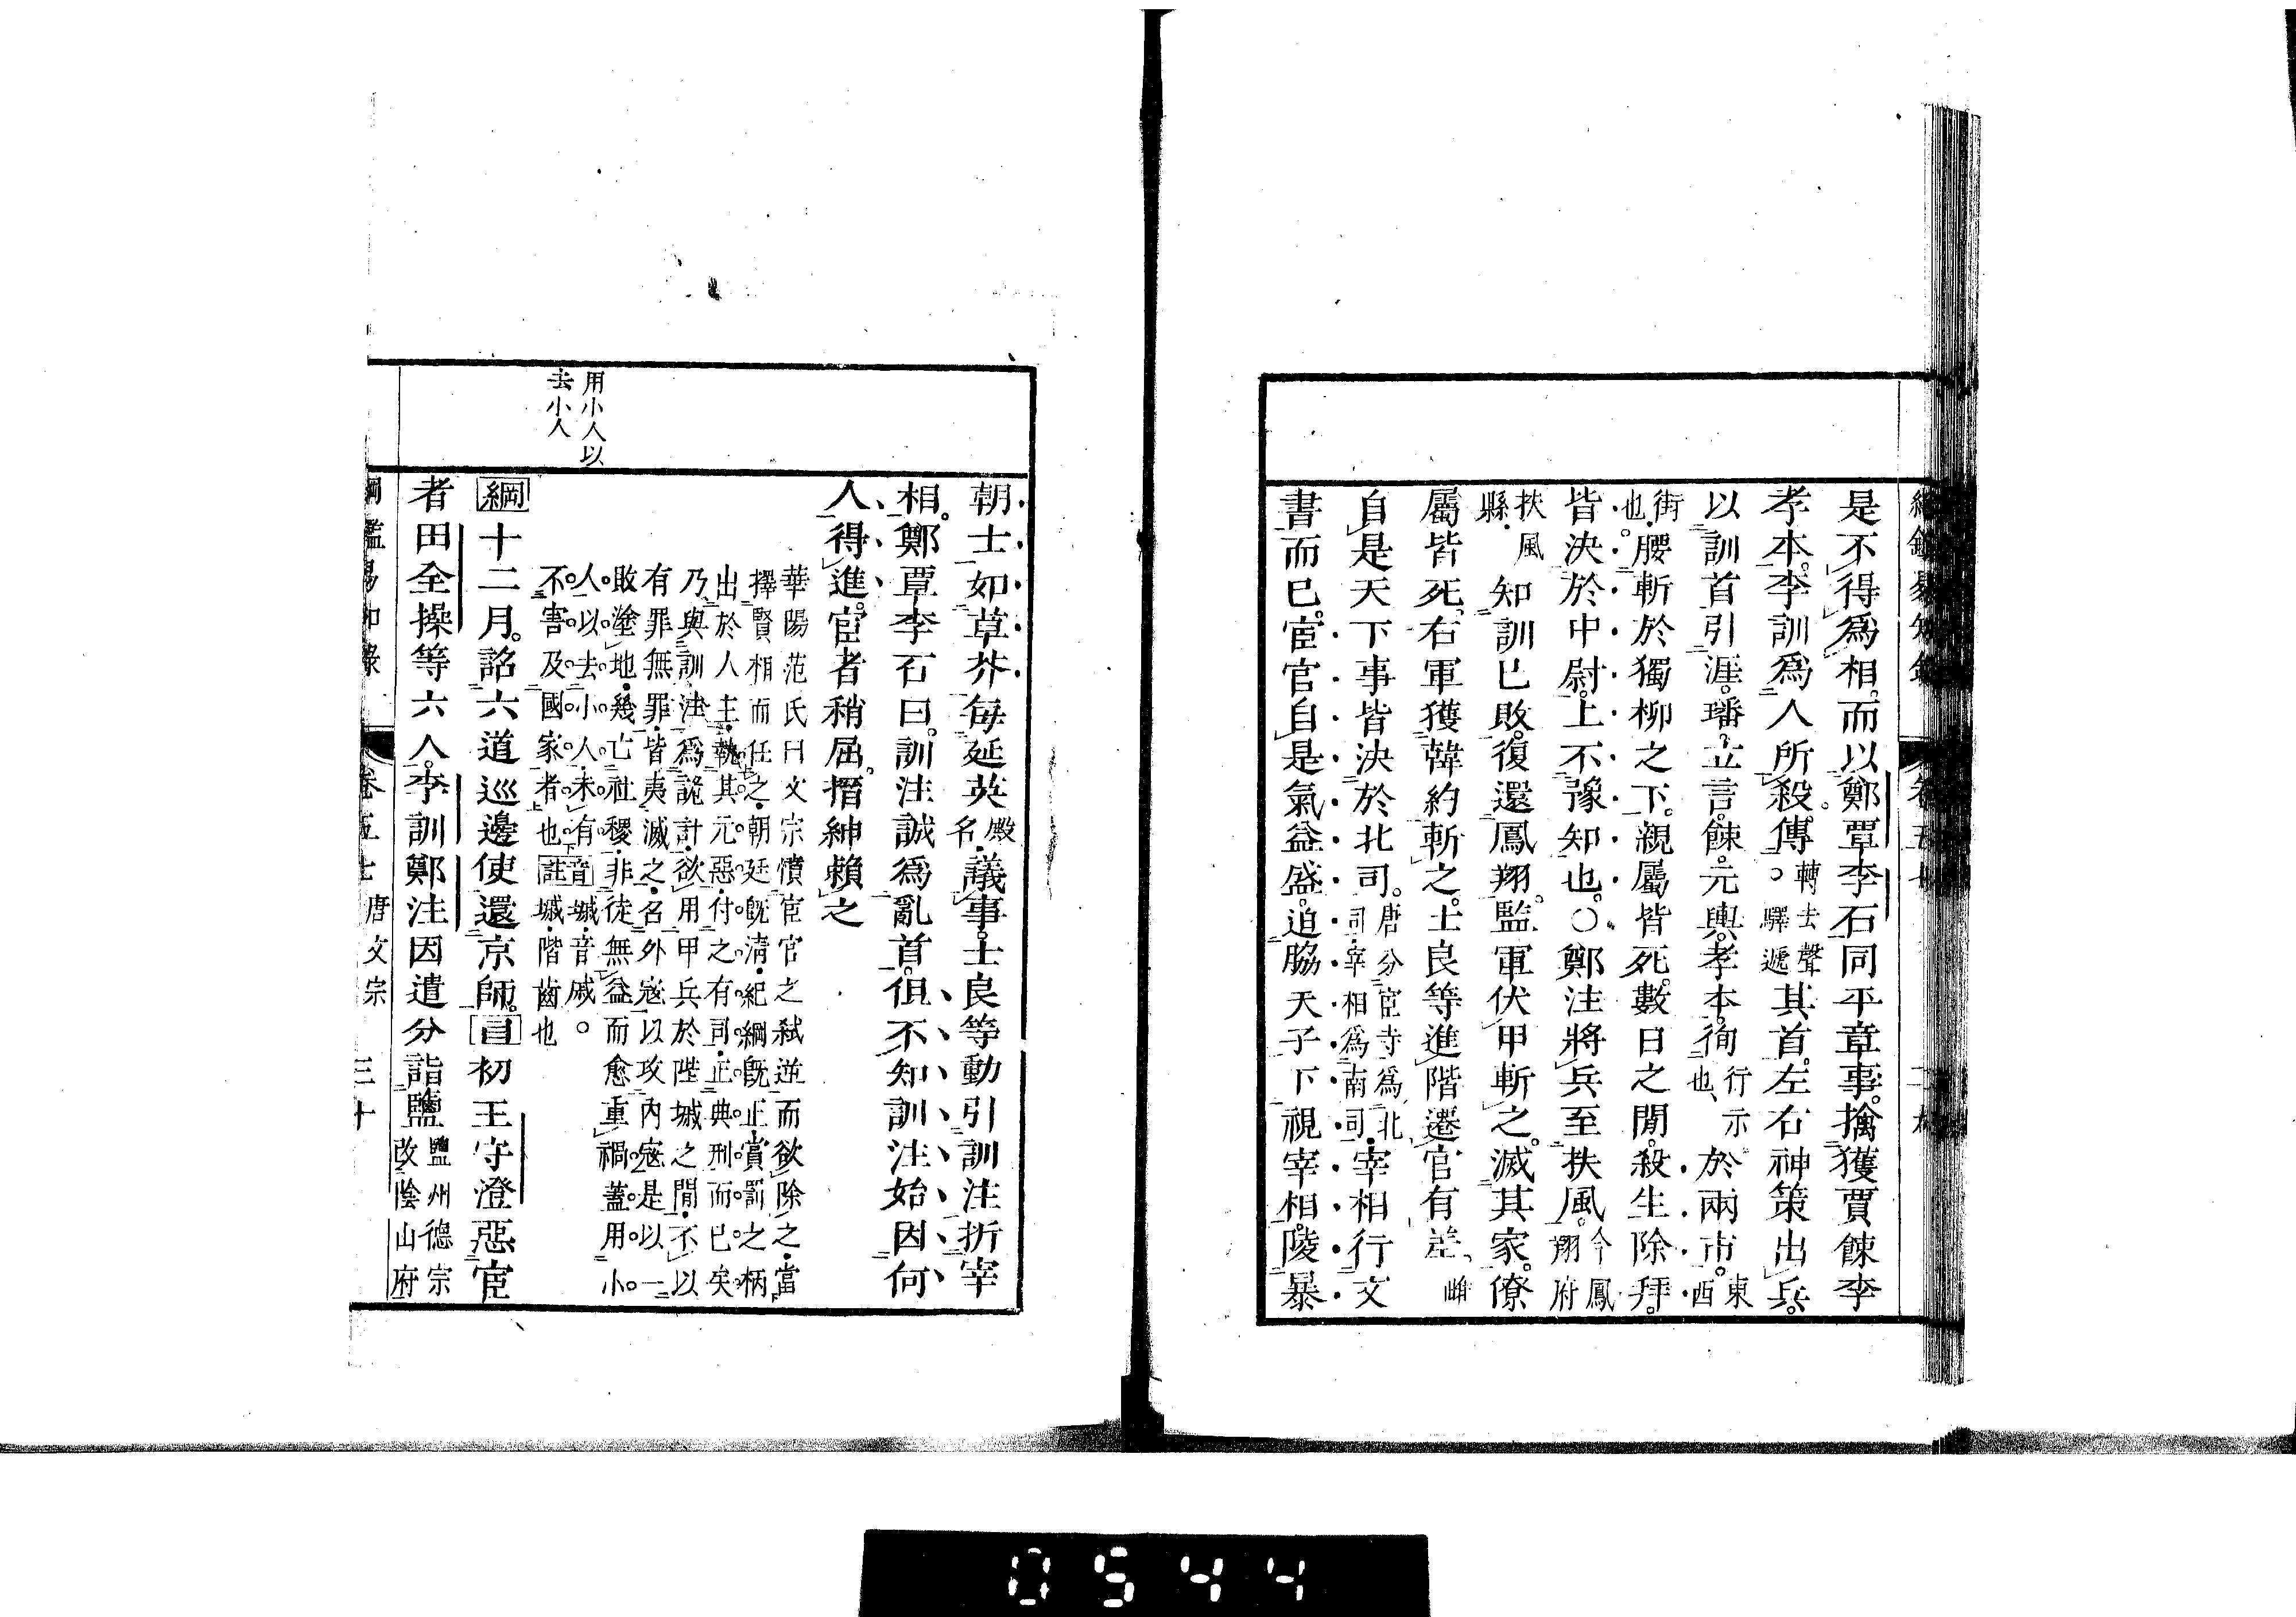 是不得爲相。而以鄭覃李石同平章事。擒獲賈餗李
孝本。李訓爲人所殺。傳轉去聲。驛遞其首。左右神策出兵。
以訓首引涯。璠。立言。餗。元輿。孝本。徇行示也、於兩市。東西
街也。腰斬於獨柳之下。親屬皆死。數日之閒。殺生除拜。
皆決於中尉。上不豫知也。○鄭注將兵至扶風。今鳳翔府
扶風縣。知訓已敗。復還鳳翔。監軍伏甲斬之。滅其家。僚
屬皆死。右軍獲韓約斬之。士良等進階遷官有差。
自是天下事皆決於北司。唐分宦寺爲北司。宰相爲南司。宰相行文
書而已。宦官自是氣益盛。迫脇天子。下視宰相。陵暴
朝士如草芥。每延英殿名。議事。士良等動引訓注折宰
相。鄭覃李石曰。訓注誠爲亂首。但不知訓注始因何
人得進。宦者稍屈。搢紳賴之
用小人以
去小人
華陽范氏曰文宗憤宦官之弑逆而欲除之。當
擇賢相而任之。朝廷旣淸。紀綱旣正。賞罰之柄
出於人主。執其元惡。付之有司。正典刑而已矣。
乃與訓注爲詭計。欲用甲兵於陛城之間。不以
有罪無罪。皆夷滅之。名外寇以攻內寇。是以一
敗塗地。幾亡社稷。非徒無益。而愈重禍。蓋用小
人以去小人。未有
不害及國家者也註城。階齒也
音城。音戚。
綱十二月。詔六道巡邊使還京師。目初王守澄惡宦
者田全操等六人。李訓鄭注因遣分詣鹽鹽州德宗改陰山府
卷五七 唐文宗 三十
0544